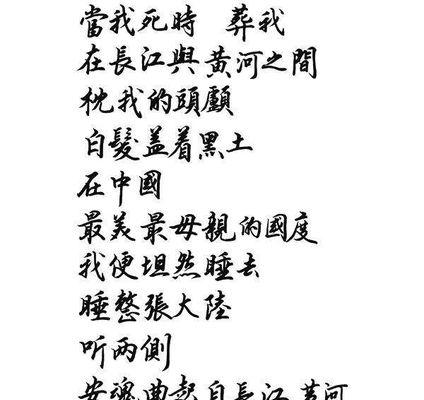 當我死時 葬我
在長江與黃河之間
枕我的頭顱
白髮盖着黑土
在中國
最美最母親的國度
我便坦然睡去
睡整張大陸
听兩側
安魂曲起自長江黃河